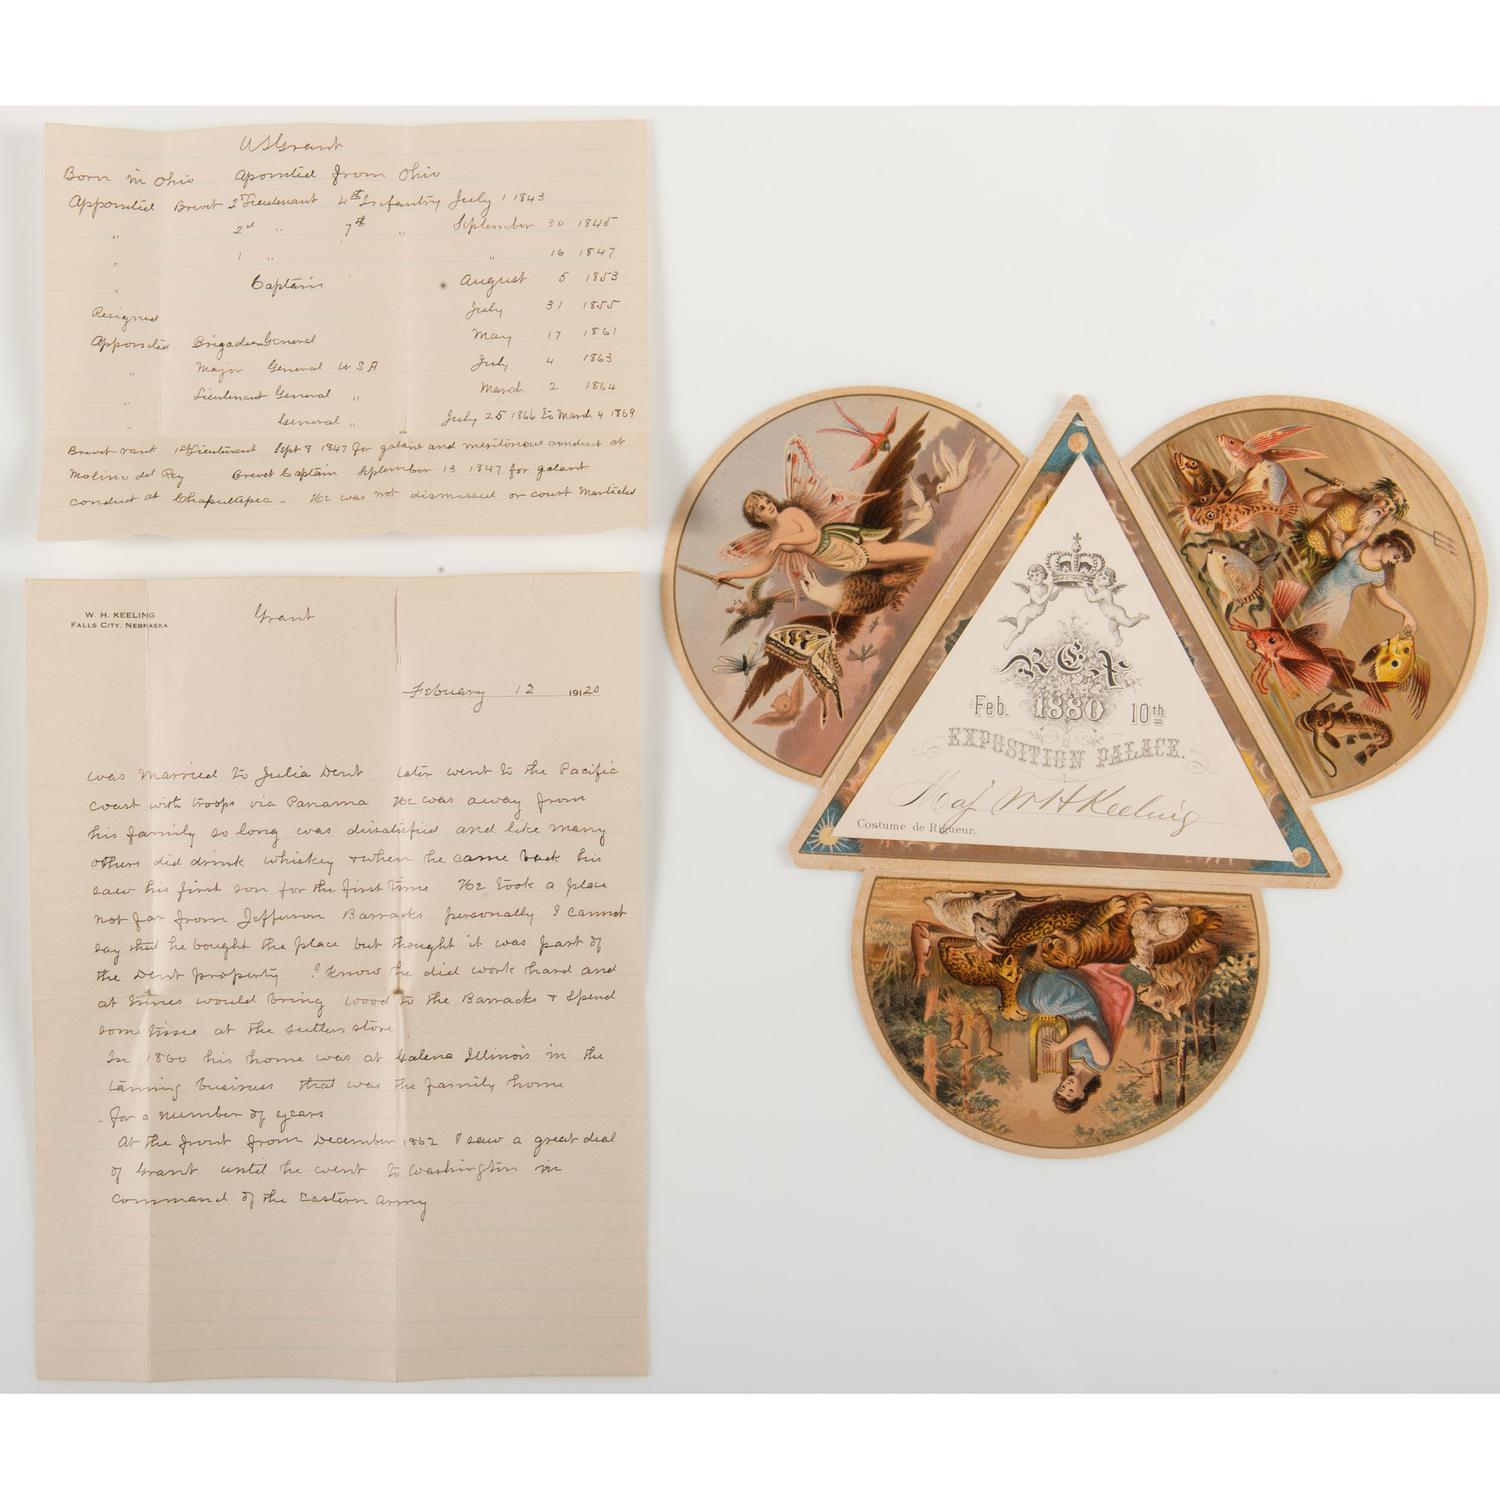 USGrant
Born in Ohio Apointed from Ohio
Appointed Brevet 2d Lieutenant 4th Infantry July 1 1843
" 2d " 7th " September 30 1845
" 1 " " 16 1847
" Captain August 5 1853
Resigned July 31 1855
Appointed Brigadier General May 17 1861
" Major General U S A July 4 1863
" Lieutenant General " March 2 1864
" General " July 25 1866 to March 4 1869
Brevet rank 1st Lieutenant Sept 8 1847 for galant and meritorious conduct at
Molino del Rey Brevet Captain September 13 1847 for galant
conduct at Chapultepec " He was not dismissed or court Martialed
W. H. KEELING
FALLS CITY, NEBRASKA
Grant
February 12 19120
was married to Julia Dent later went to the Pacific
coast with troops via Panama He was away from
his family so long was dissatisfied and like many
others did drink whiskey & when he came back his
saw his first son for the first time He took a place
not far from Jefferson Barracks personally I cannot
say that he bought the place but thought it was part of
the Dent property I know he did work hard and
at times would bring wood to the Barracks & spend
some time at the sutlers store
In 1860 his home was at Galena Illinois in the
tanning business that was the family home
for a number of years
At the front from December 1862 I saw a great deal
of Grant until he went to Washington in
command of the Eastern Army
REX
Feb. 1880 10th
EXPOSITION PALACE.
Maj W H Keeling
Costume de Rigueur.